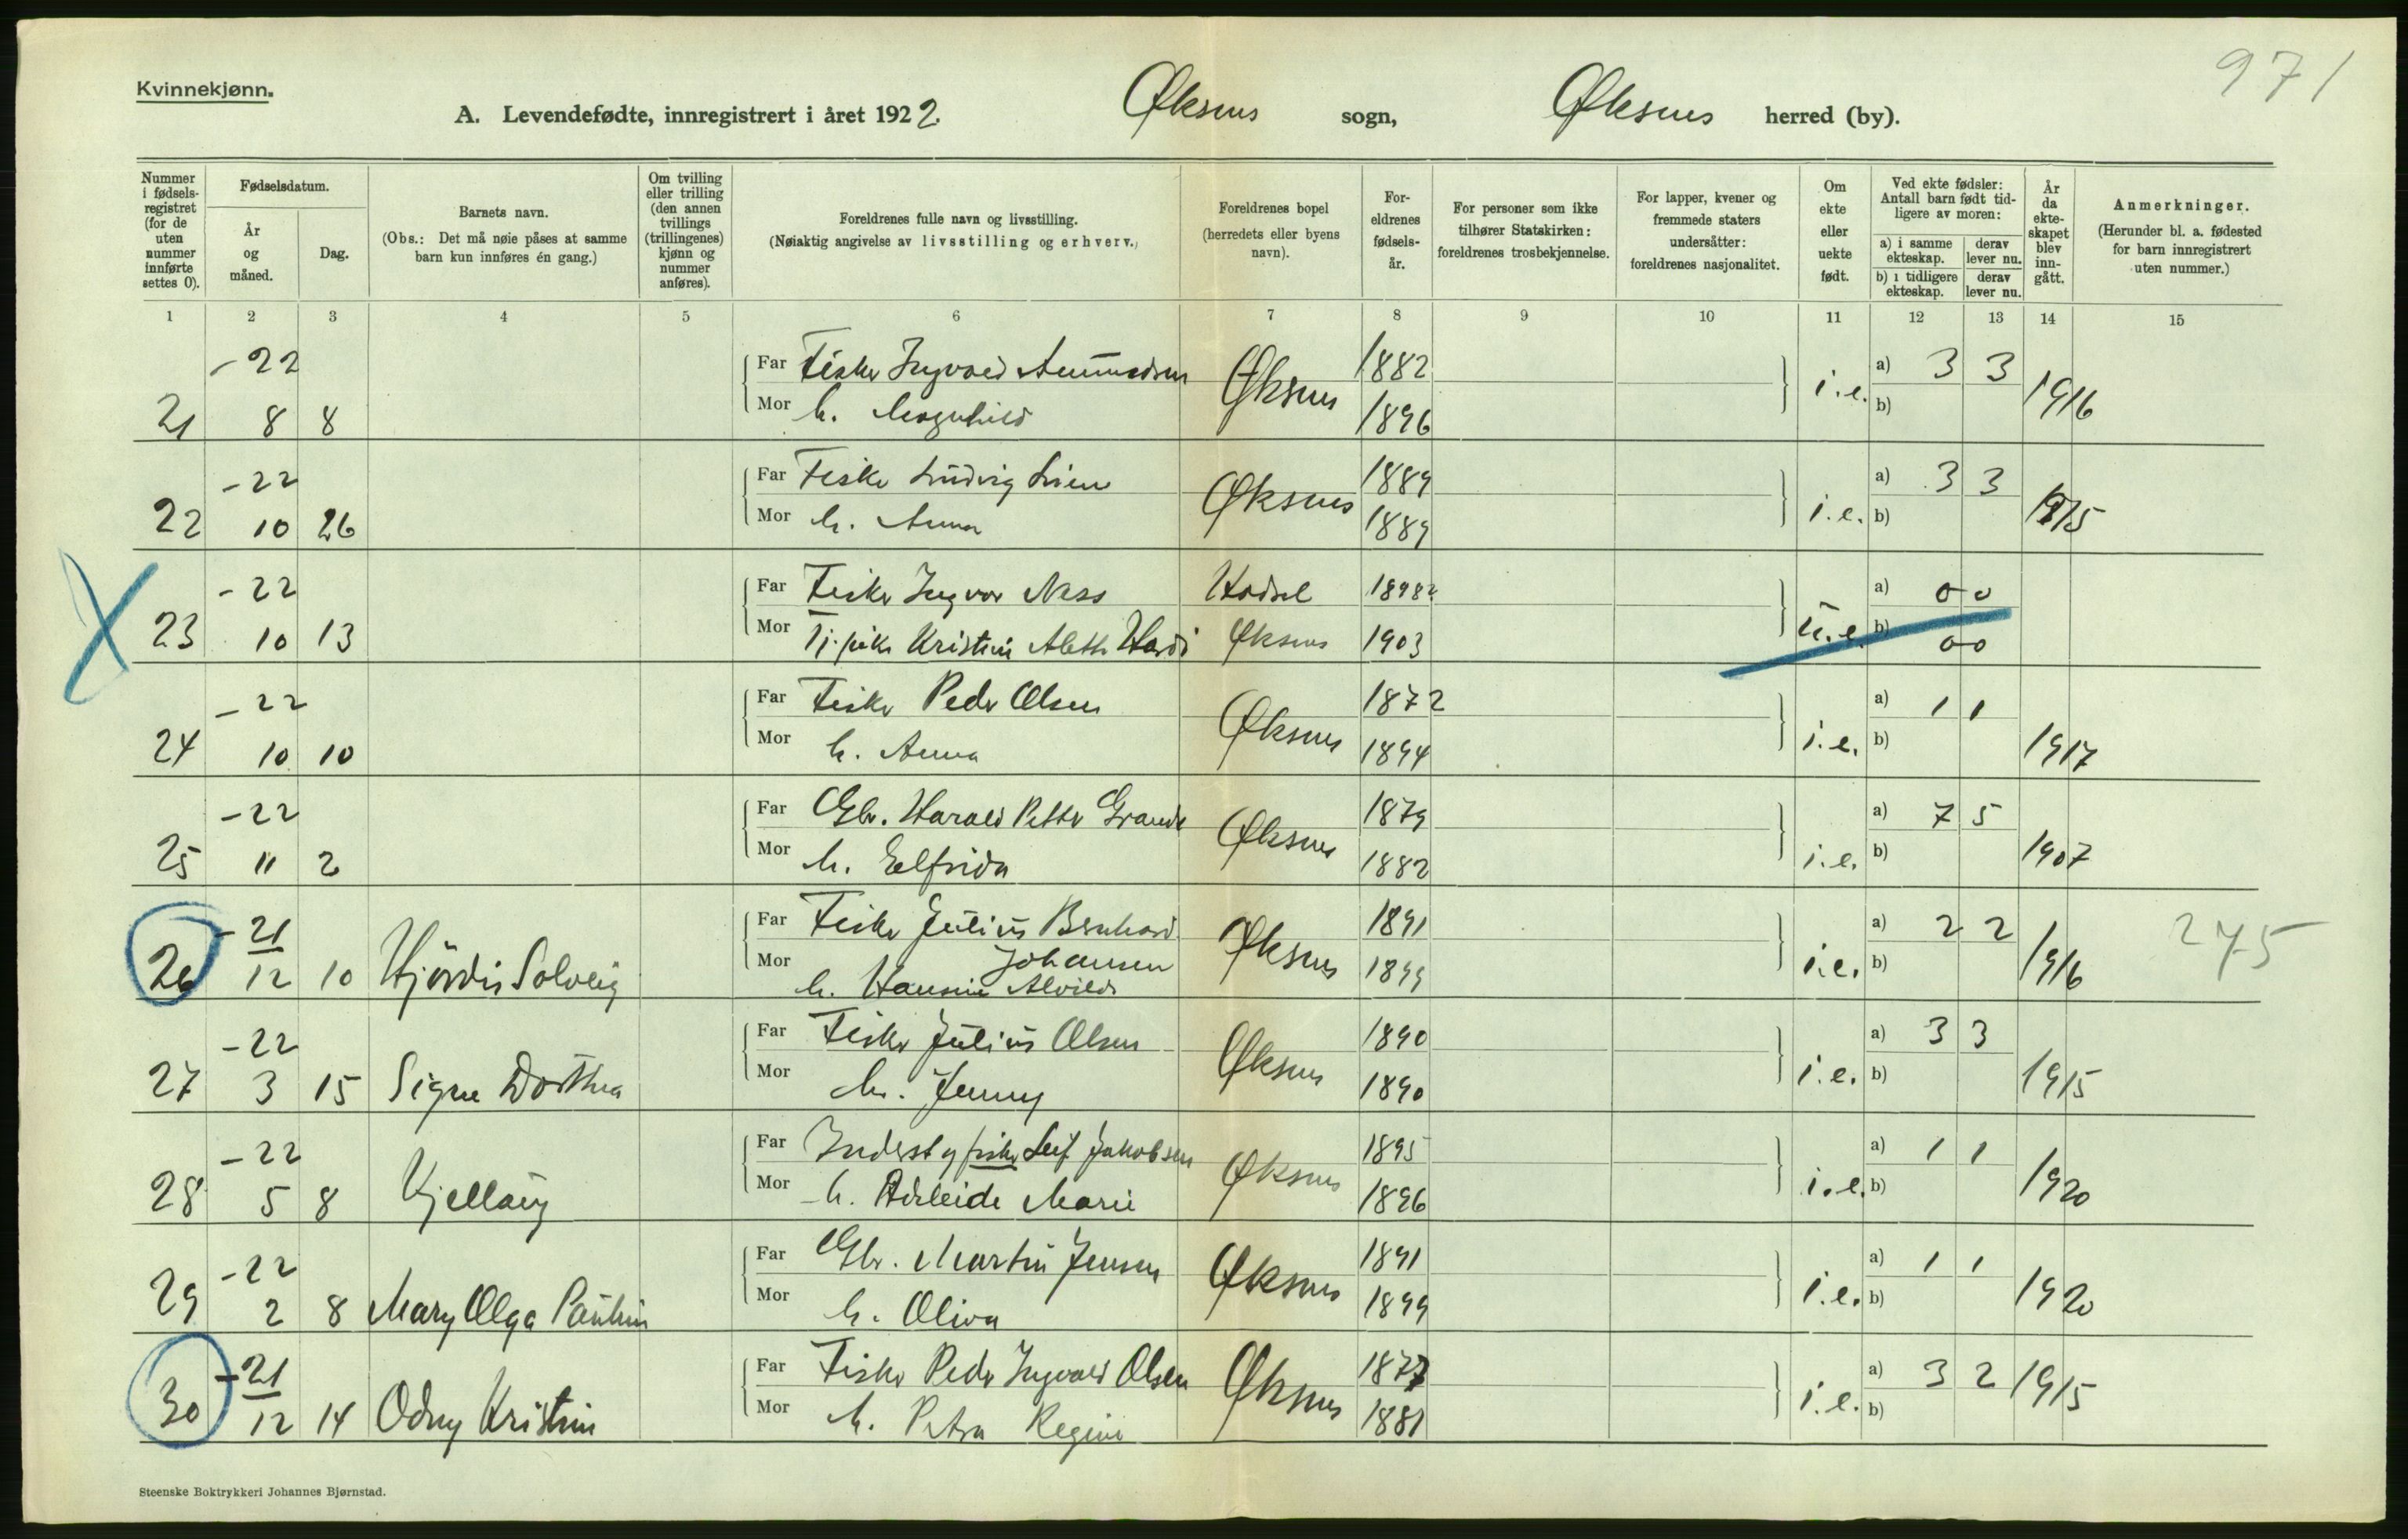 971
Kvinnekjønn.
A. Levendefødte, innregistrert i året 1922. Øksnes sogn, Øksnes herred (by).
Nummer i fødsels-registret (for de uten nummer innførte settes 0).
Fødselsdatum.
År og måned.
Dag.
Barnets navn.
(Obs.: Det må nøie påses at samme barn kun innføres én gang.)
Om tvilling eller trilling (den annen tvillings (trillingenes) kjønn og nummer anføres).
Foreldrenes fulle navn og livsstilling.
(Nøiaktig angivelse av livsstilling og erhverv.)
Foreldrenes bopel (herredets eller byens navn).
For-eldrenes fødsels-år.
For personer som ikke tilhører Statskirken: foreldrenes trosbekjennelse.
For lapper, kvener og fremmede staters undersåtter: foreldrenes nasjonalitet.
Om ekte eller uekte født.
Ved ekte fødsler: Antall barn født tid-ligere av moren:
a) i samme ekteskap.
derav lever nu.
b) i tidligere ekteskap.
derav lever nu.
År da ekte-skapet blev inn-gått.
Anmerkninger.
(Herunder bl. a. fødested for barn innregistrert uten nummer.)
1 2 3 4 5 6 7 8 9 10 11 12 13 14 15
-22 Far Fisker Ingvald Amundsen Øksnes 1882 i.e. a) 3 3 1916
21 8 8 Mor h. Magnhild 1896 b)
-22 Far Fisker Ludvig Lien Øksnes 1889 i.e. a) 3 3 1915
22 10 26 Mor h. Anna 1889 b)
-22 Far Fisker Ingvar Ness Hadsel 1898? u.e. a) 0 0
23 10 13 Mor Tj.pike Kristine Aleth Øksnes 1903 b) 0 0
-22 Far Fisker Peder Olsen Øksnes 1872 i.e. a) 1 1 1917
24 10 10 Mor h. Anna 1894 b)
-22 Far Gbr. Harald Petter Grande Øksnes 1879 i.e. a) 7 5 1907
25 11 2 Mor h. Elfrida 1882 b)
-21 Far Fisker Julius Bernhard Øksnes 1891 i.e. a) 2 2 1916 275
Johansen
26 12 10 Hjørdis Solveig Mor h. Hansine Alvilde 1899 b)
-22 Far Fisker Julius Olsen Øksnes 1890 i.e. a) 3 3 1915
27 3 15 Signe Dorthea Mor h. Jenny 1890 b)
-22 Far Inderst og fisker Leif Jakobsen Øksnes 1895 i.e. a) 1 1 1920
28 5 8 Kjellaug Mor h. Adeleide Marie 1896 b)
-22 Far Gbr. Martin Jensen Øksnes 1891 i.e. a) 1 1 1920
29 2 8 Mary Olga Pauline Mor h. Oliva 1899 b)
-21 Far Fisker Peder Ingvald Olsen Øksnes 1877 i.e. a) 3 2 1915
30 12 14 Odny Kristine Mor h. Petra Regine 1881 b)
Steenske Boktrykkeri Johannes Bjørnstad.